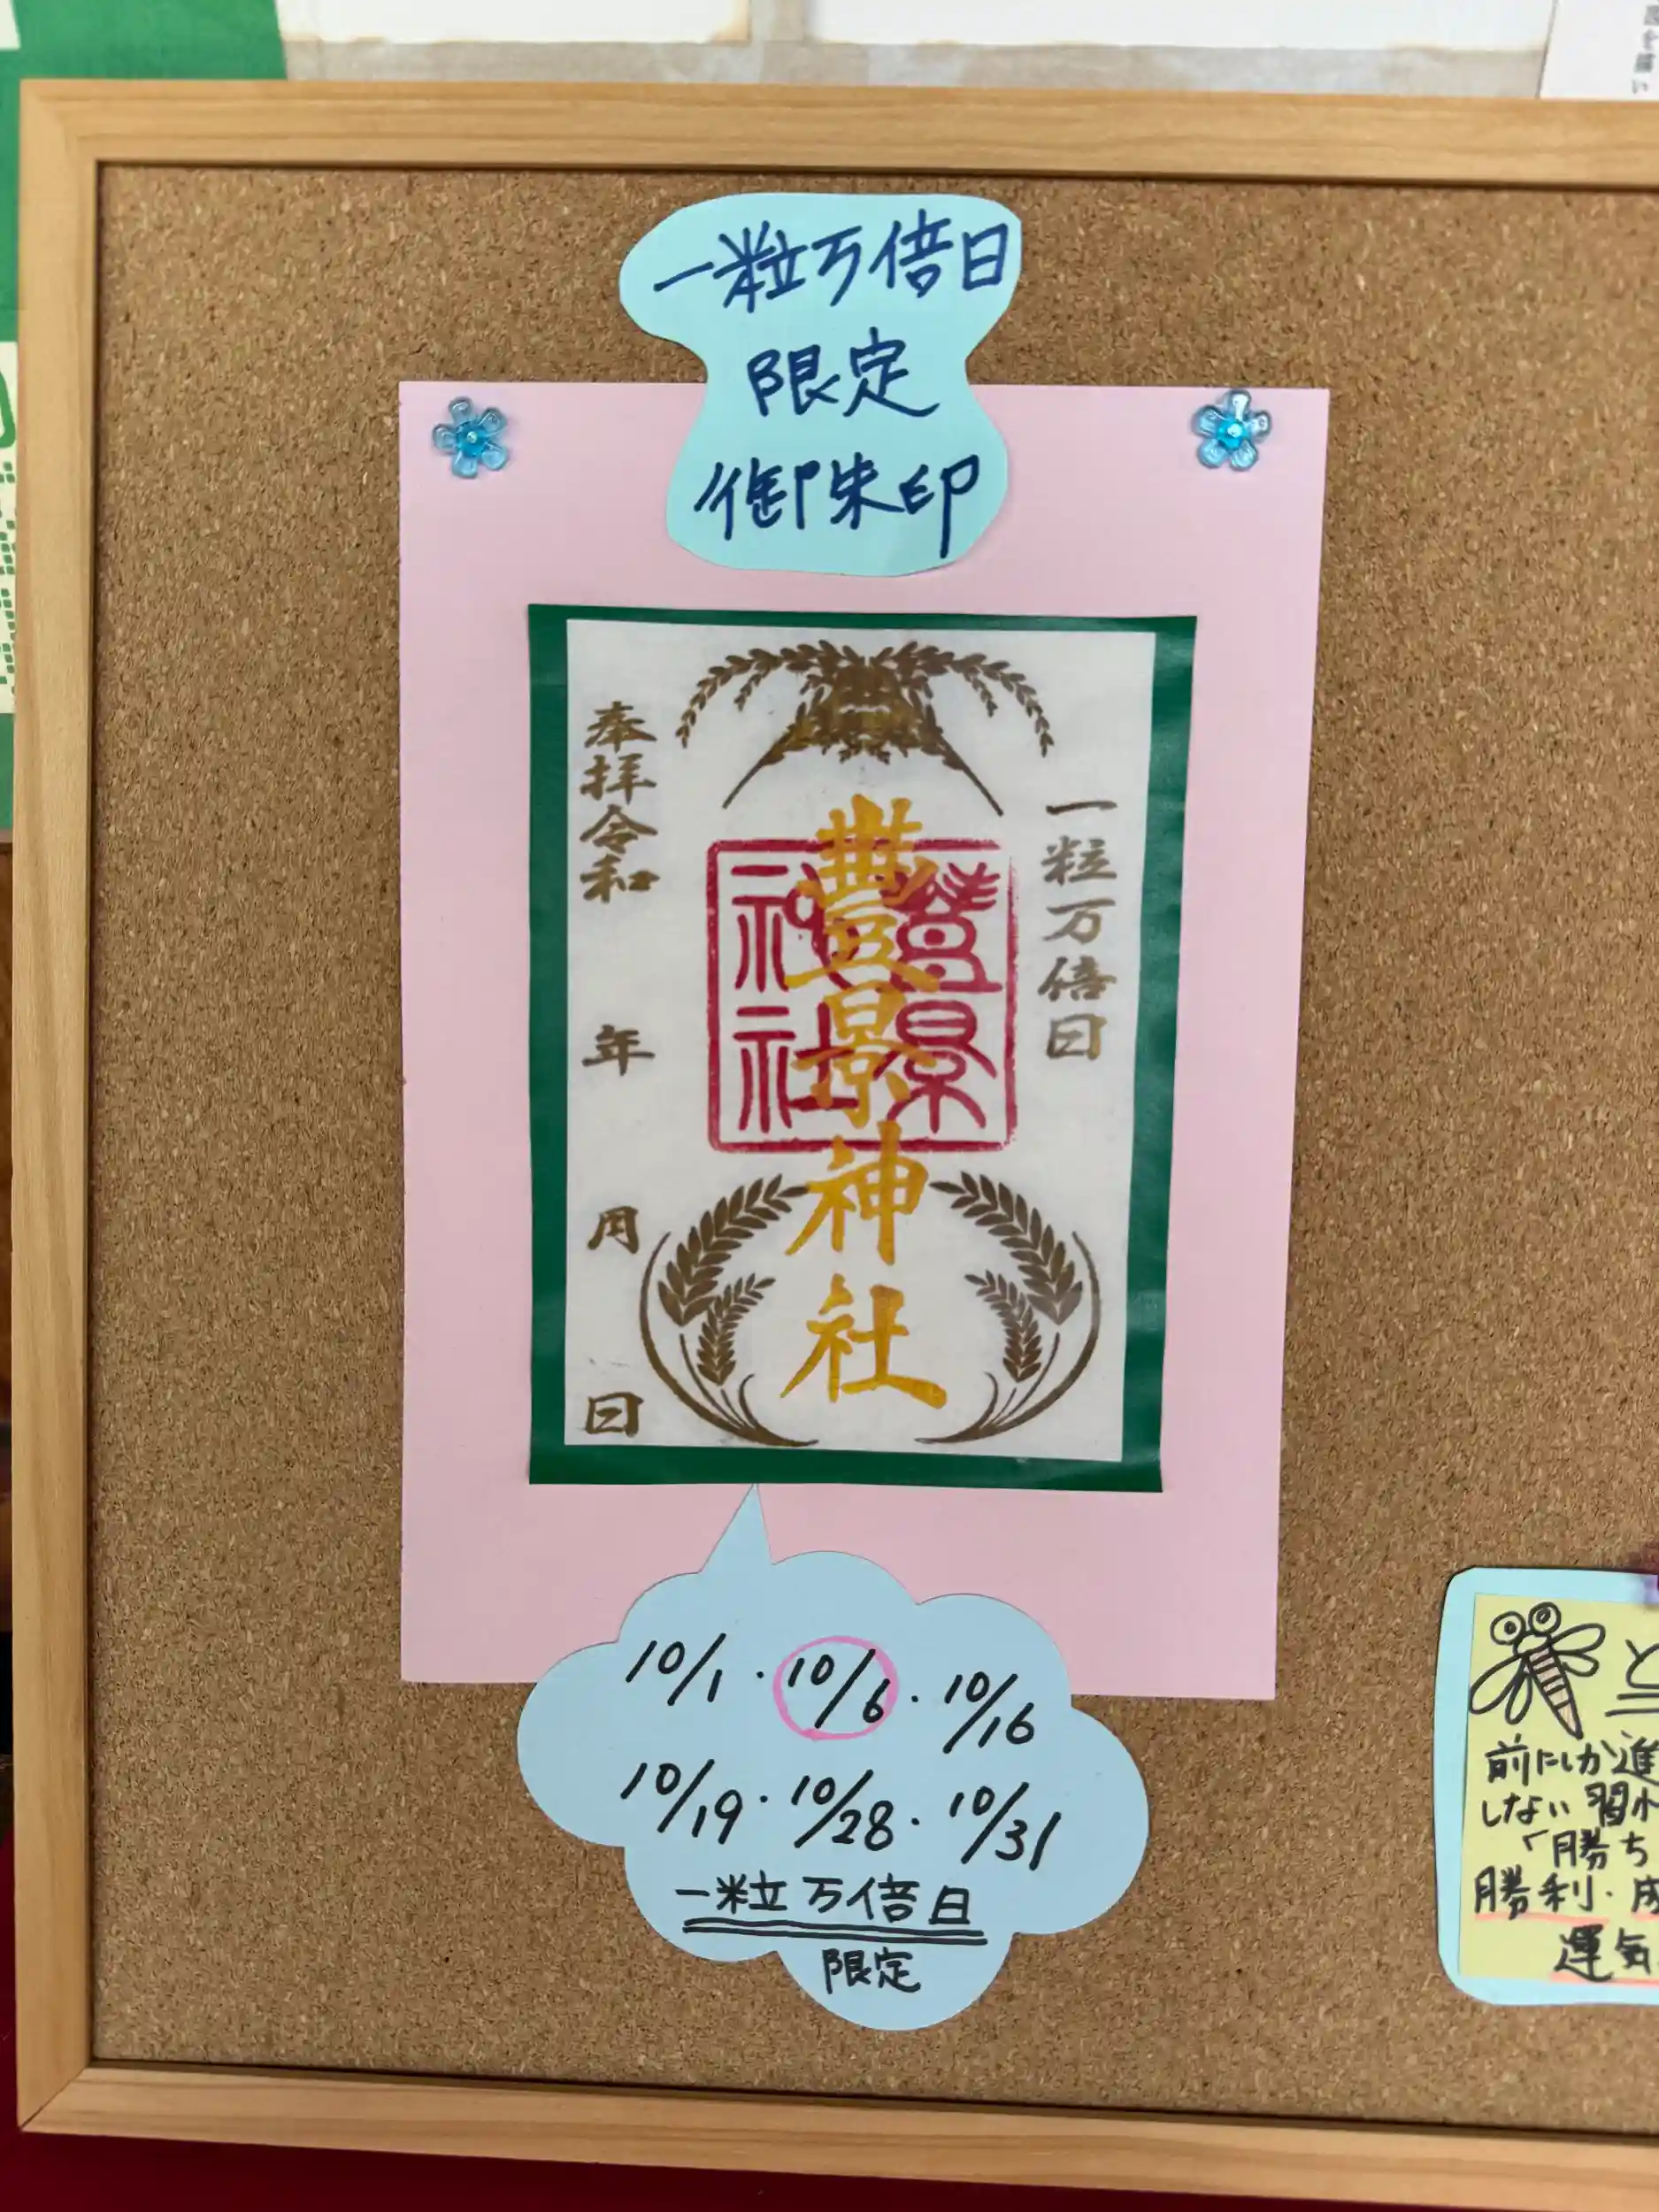 一粒万倍日
限定
御朱印
一粒万倍日
豊景神社
豊景神社
奉拝令和 年 月 日
10/1・10/6・10/16
10/19・10/28・10/31
一粒万倍日
限定
と
前にしか進
しない習
「勝ち
勝利・成
運気